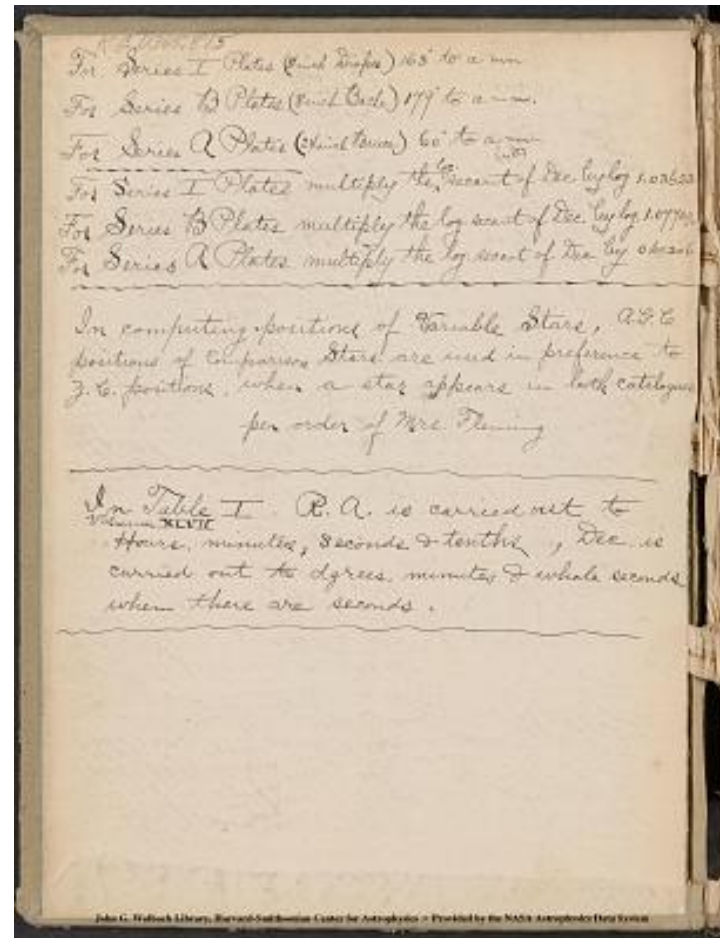 For Series I Plates (8 inch Draper) 163" to a mm
For Series B Plates (8 inch Bache) 179" to a mm.
For Series A Plates (24 inch Bruce) 60" to a mm
For Series I Plates multiply the log secant of Dec by log
For Series B Plates multiply the log secant of Dec. by log
For Series A Plates multiply the log secant of Dec by
In computing positions of Variable Stars, A.G.C
positions of Comparison Stars are used in preference to
Z.C. positions, when a star appears in both catalogues
per order of Mrs. Fleming
In Table I R.A. is carried out to
Volume XLVII
Hours, minutes, seconds & tenths, Dec. is
carried out to dgrees, minutes & whole seconds
when there are seconds.
John G. Wolbach Library, Harvard-Smithsonian Center for Astrophysics • Provided by the NASA Astrophysics Data System